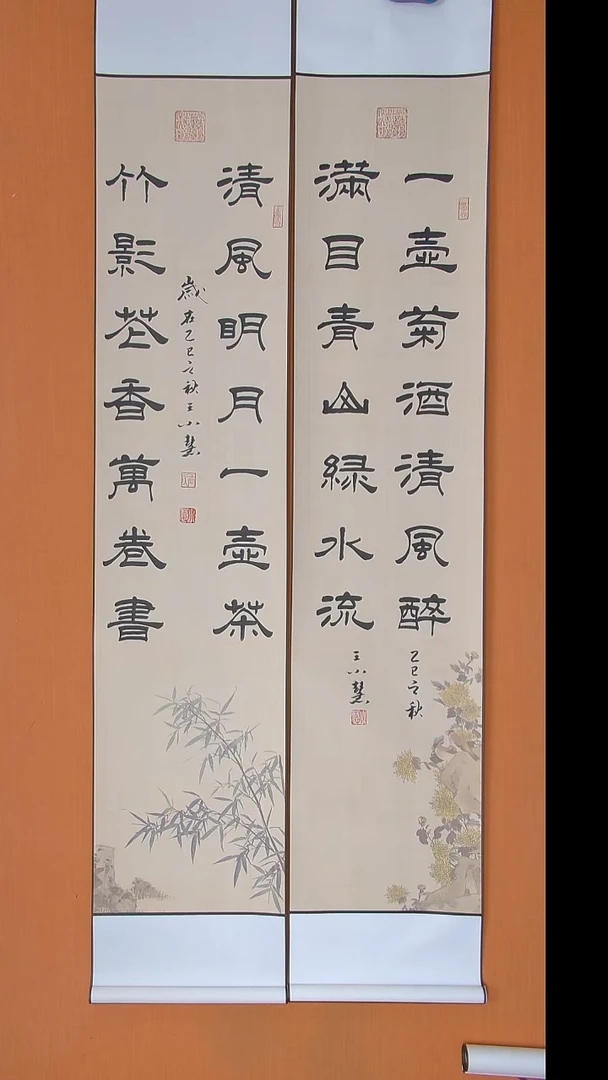 一壺菊酒清風醉
滿目青山綠水流
乙巳之秋
王小慧
清風明月一壺茶
竹影花香萬卷書
歲在乙巳之秋王小慧